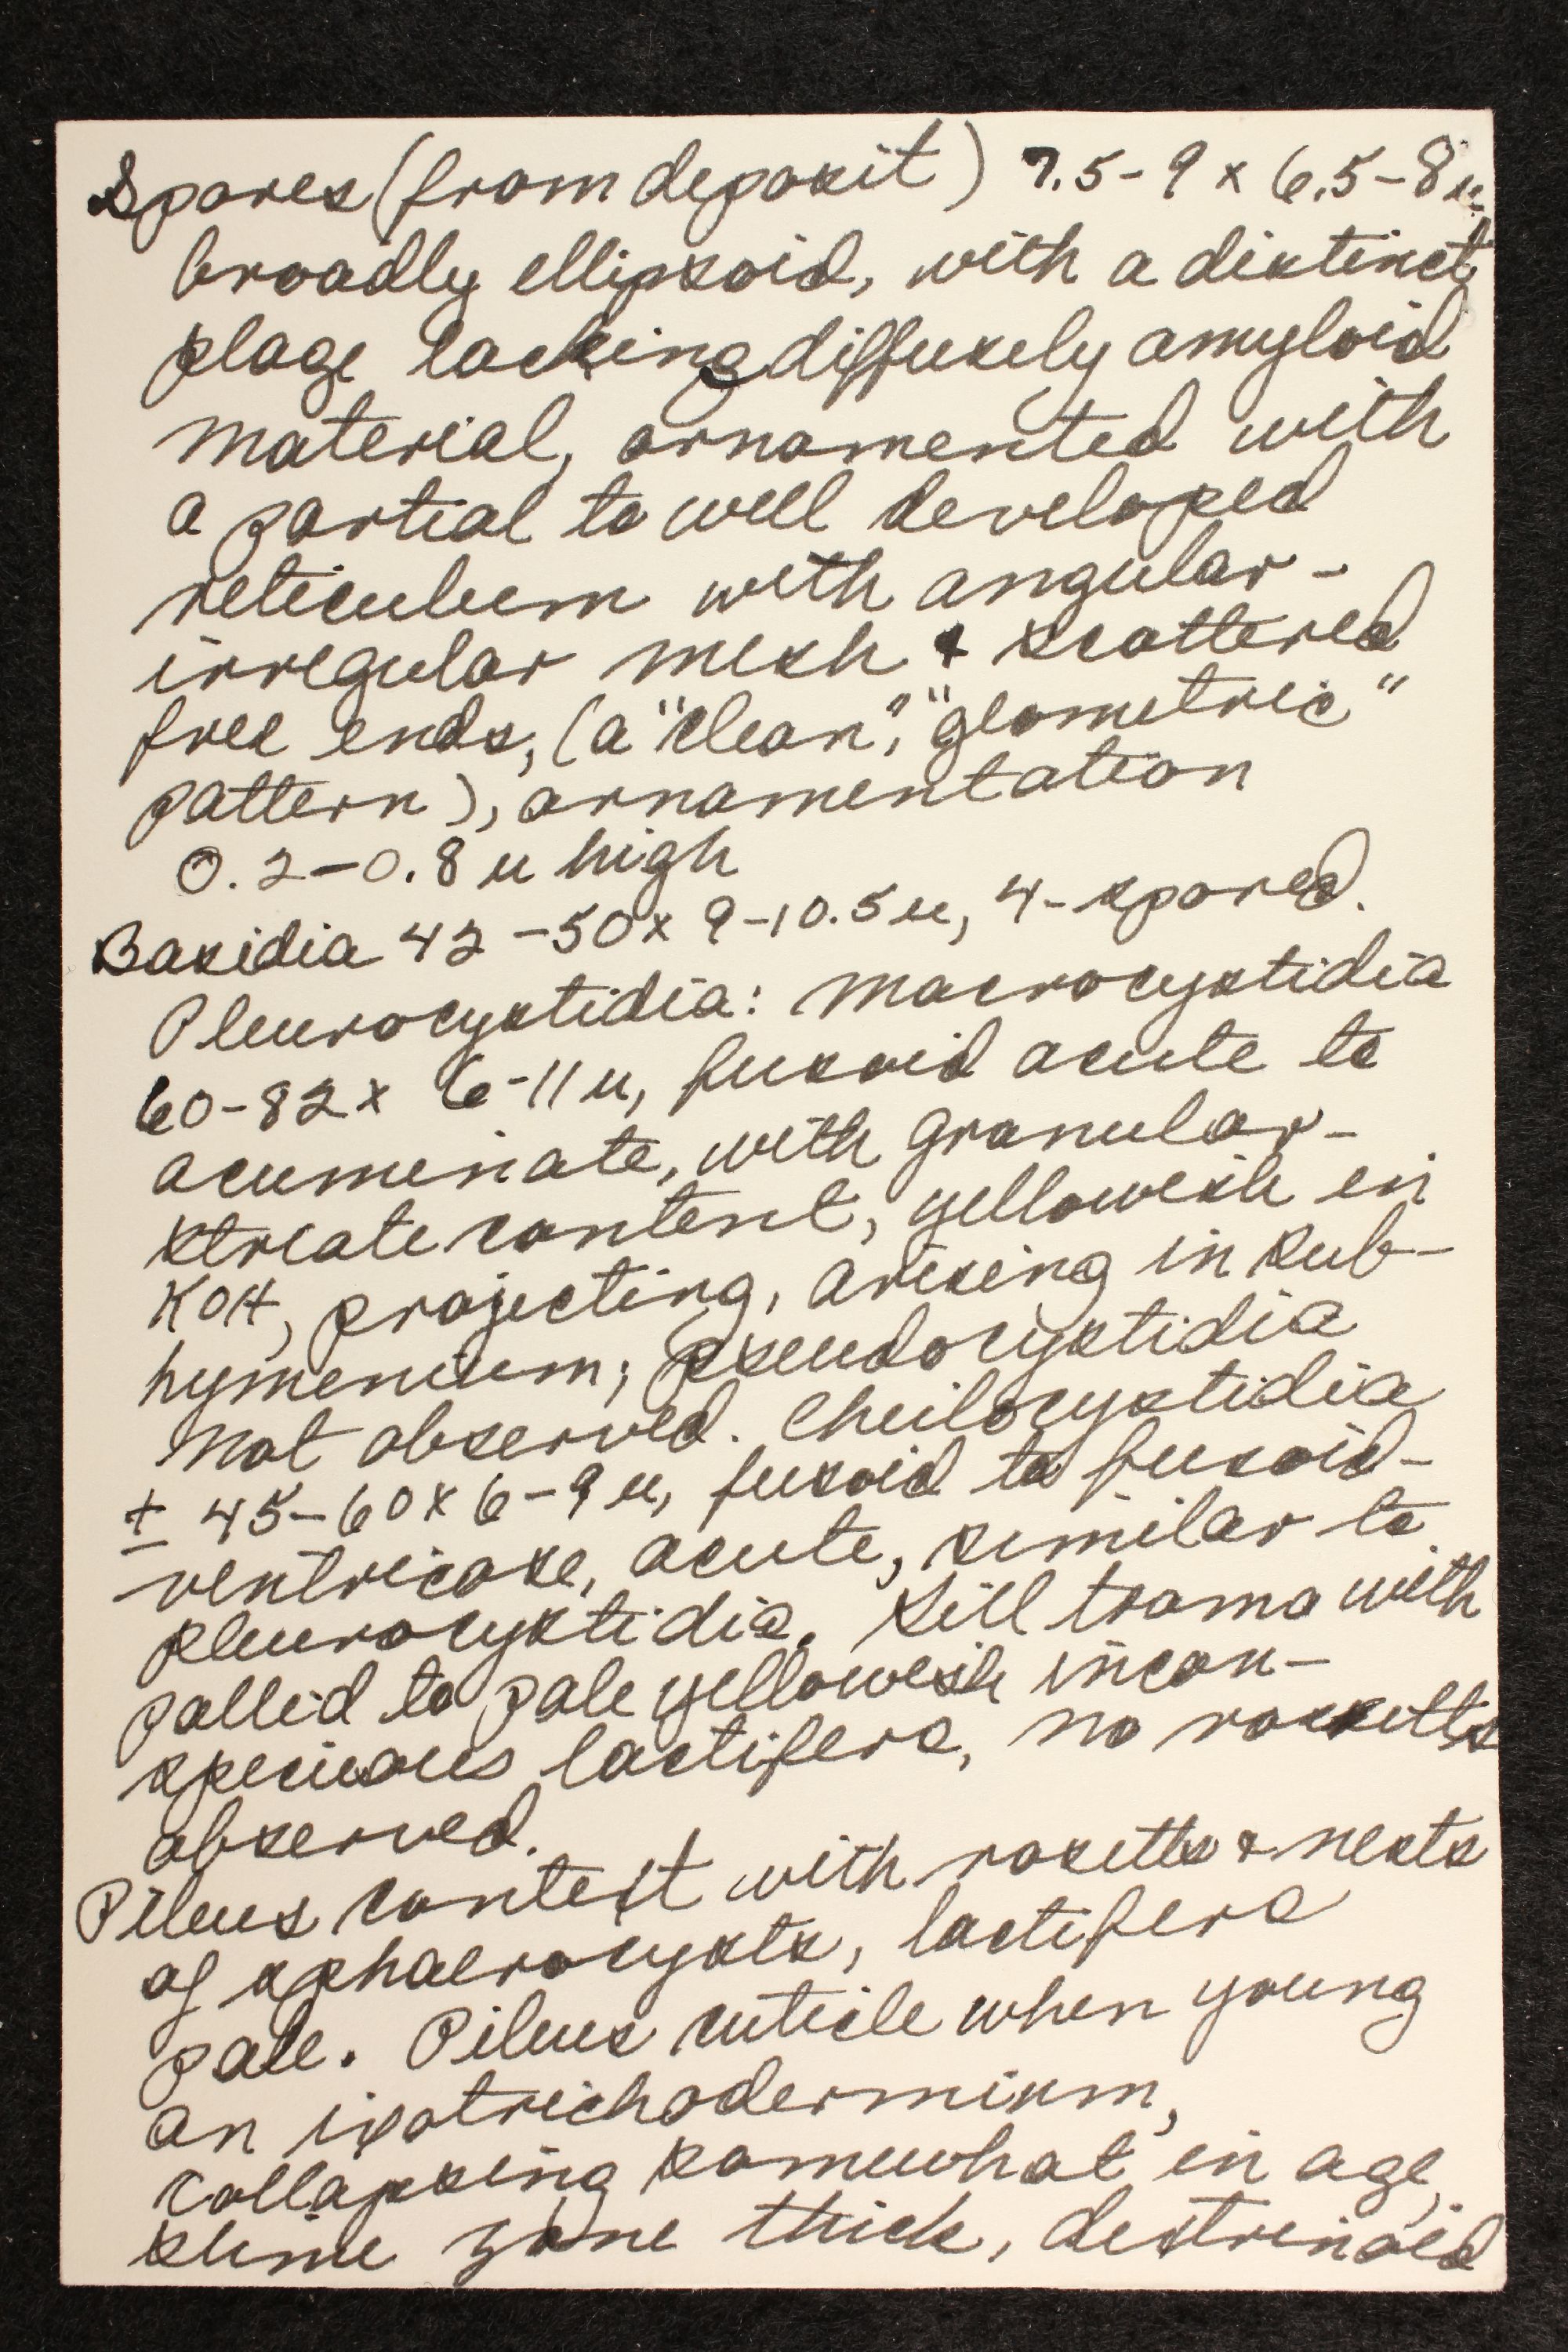 Spores (from deposit) 7.5-9 x 6.5-8 u,
broadly ellipsoid, with a distinct
plage lacking diffusely amyloid
material, ornamented with
a partial to well developed
reticulum with angular-
irregular mesh & scattered
free ends, (a "clean", "geometric"
pattern), ornamentation
0.2-0.8 u high
Basidia 42-50 x 9-10.5 u, 4-spored.
Pleurocystidia: macrocystidia
60-82 x 6-11 u, fusoid acute to
acuminate, with granular-
striate content, yellowish in
KOH, projecting, arising in sub-
hymenium; pseudocystidia
not observed. Cheilocystidia
± 45-60 x 6-9 u, fusoid to fusoid-
ventricose, acute, similar to
pleurocystidia. Gill trama with
pallid to pale yellowish incon-
spicuous lactifers, no rosetts
observed.
Pileus context with rosetts & nests
of sphaerocysts, lactifers
pale. Pileus cuticle when young
an ixotrichodermium,
collapsing somewhat in age,
slime zone thick, dextrinoid